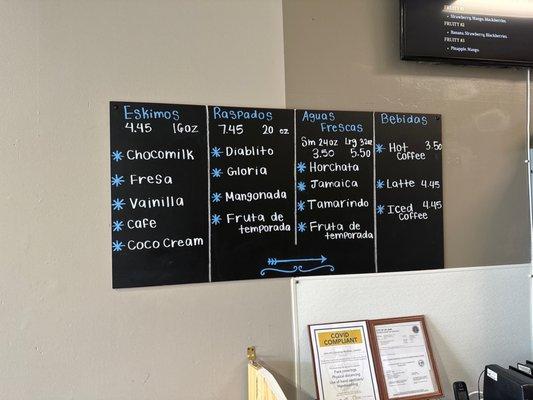 Strawberry, Mango, Blackberries.
FRUITY #2
Banana, Strawberry, Blackberries.
FRUITY #3
Pineapple, Mango.
Eskimos
4.45 16oz
* Chocomilk
* Fresa
* Vainilla
* cafe
* Coco Cream
Raspados
7.45 20 oz
* Diablito
* Gloria
* Mangonada
* Fruta de
temporada
Aguas
Frescas
Sm 24oz Lrg 32oz
3.50 5.50
* Horchata
* Jamaica
* Tamarindo
* Fruta de
temporada
Bebidas
* Hot 3.50
Coffee
* Latte 4.45
* Iced 4.45
Coffee
COVID
COMPLIANT
Face coverings
Physical distancing